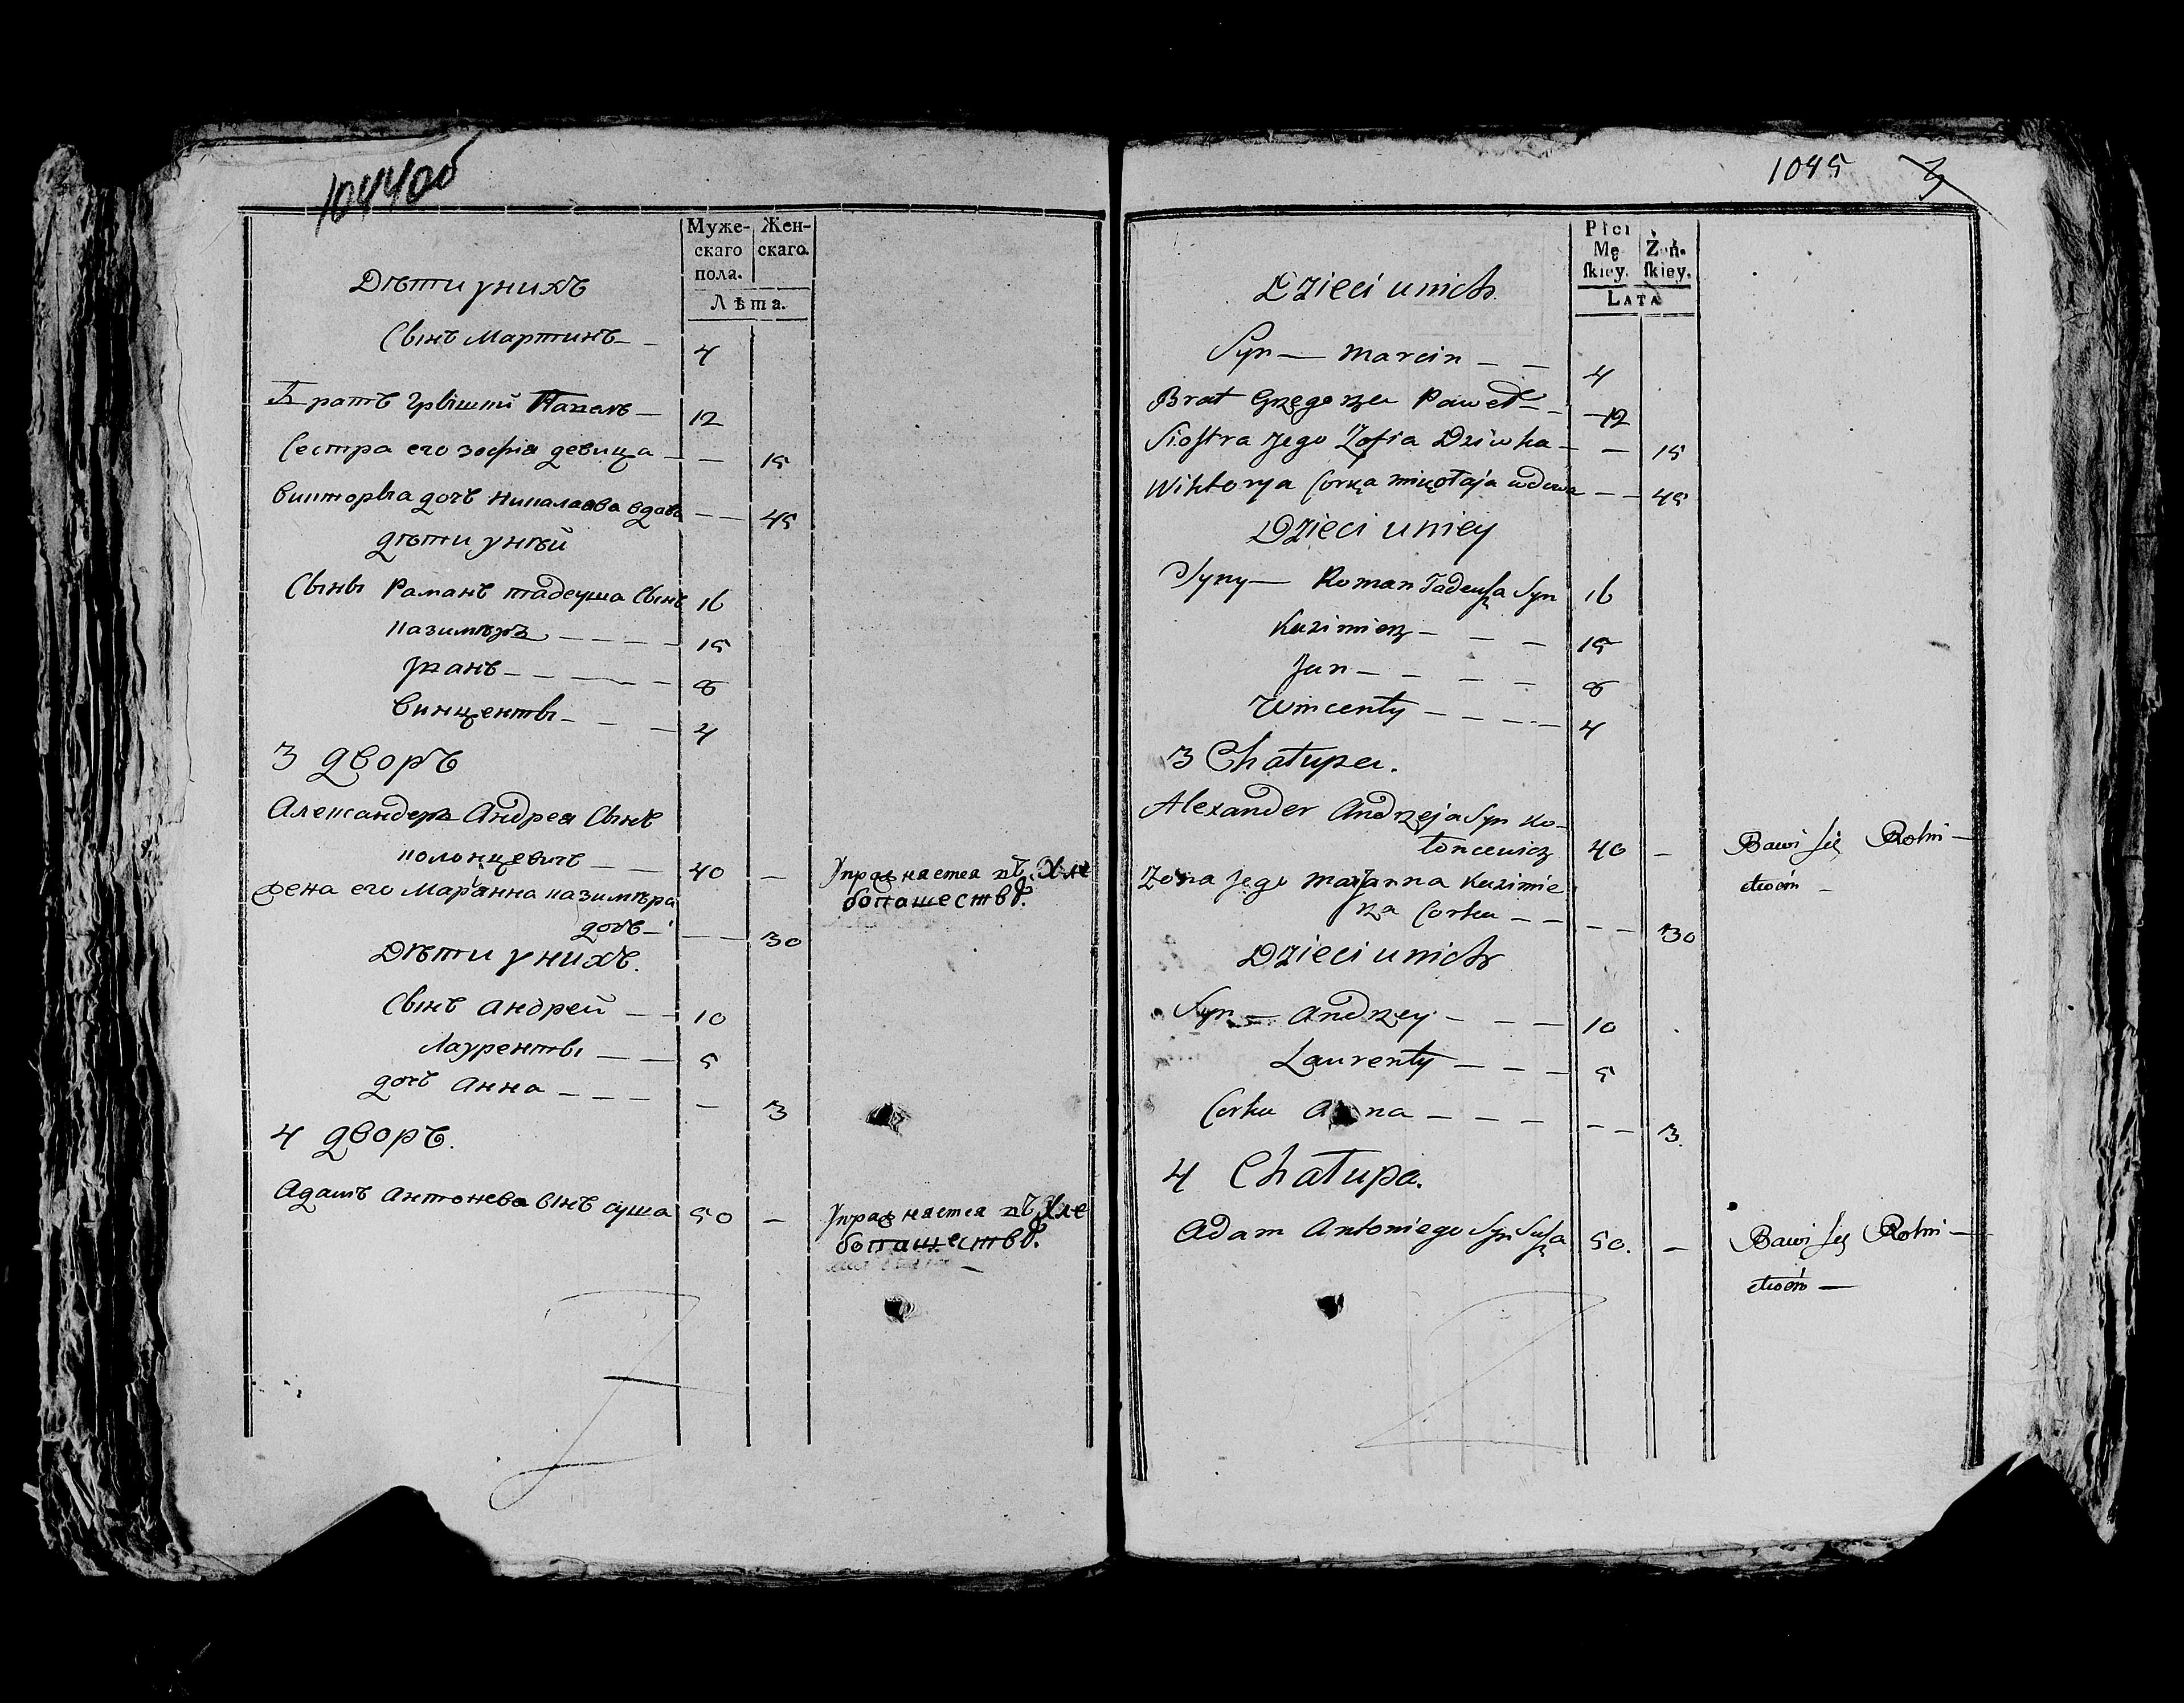 1044об
Муже-
скаго
пола.
Жен-
скаго.
Лѣта.
Дѣти унихъ
Сынъ Мартинъ — — 4
Братъ Павелъ — 12
Сестра его зофія девица — — 15
дочъ вдова — — 45
дѣти унѣй
Сыны Раманъ тадеуша Сынъ 16
казимѣръ — — — — 15
Іванъ — — — — — 8
Винценты — — — 4
3 дворъ
Александеръ Андрея Сынъ
колонцевичъ — — 40 —
жена его Марꙗнна казимѣра
дочъ — — — 30
Дѣти унихъ.
Сынъ андрей — — 10
Лауренты — — 5
дочъ анна — — — — 3
4 дворъ.
Адамъ сынъ суша 50 —
1045
Płci
Mę
ſkiey.
Żeń-
ſkiey.
LATA
Dzieci unich
Syn — Marcin — — 4
Brat Grzegorza Paweł — — 12
Siostra Jego Zofia Dziwka — — 15
Wiktorya Corka mikołaja wdowa — — 45
Dzieci uniey
Syny — Roman Tadeusza Syn 16
Kazimierz — — — 15
Jan — — — — 8
Wincenty — — — — 4
3 Chałupa.
Alexander Andrzeja Syn Ko-
łoncewicz 40 — Bawi się Rolni —
ctwem —
Żona Jego Maryanna Kazimie
rza Corka — — — — 30
Dzieci unich
Syn — Andrzey — — — 10
Laurenty — — — 5
Corka Anna — — — — — 3.
4 Chałupa.
Adam Antoniego Syn Susza 50. — Bawi się Rolni —
ctwem —